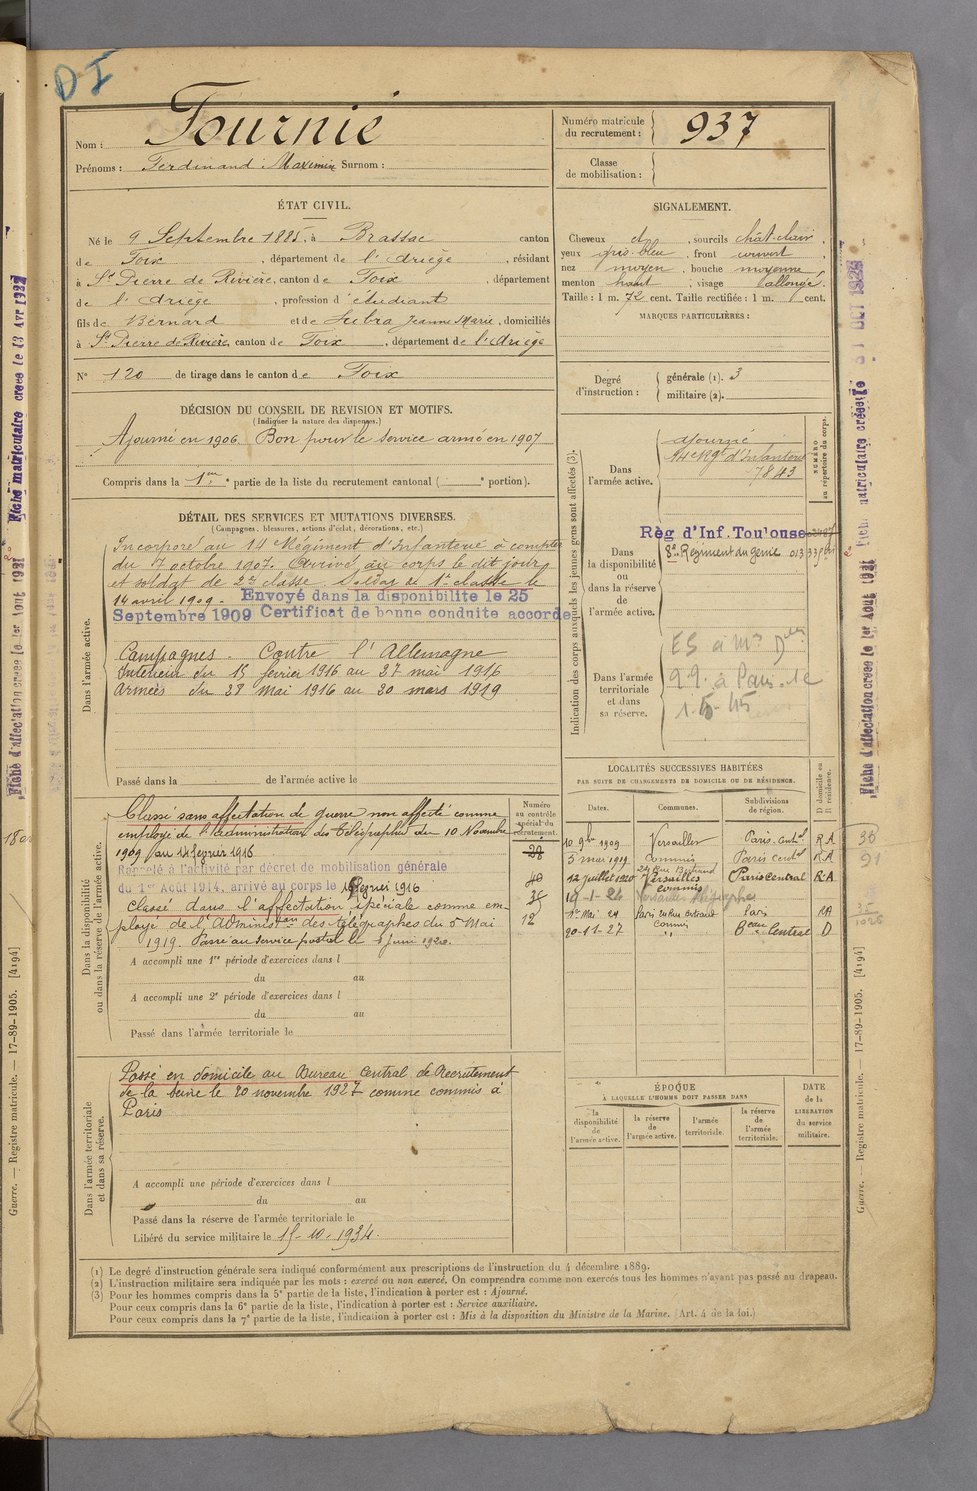 DI
Nom : Fournié
Prénoms : Ferdinand Maximin Surnom :
Numéro matricule du recrutement : 937
Classe de mobilisation :
ÉTAT CIVIL.
Né le 9 Septembre 1885, à Brassac canton
de Foix, département de l'Ariège, résidant
à St Pierre de Rivière, canton de Foix, département
de l'Ariège, profession d'étudiant
fils de Bernard et de Subra Jeanne Marie, domiciliés
à St Pierre de Rivière, canton de Foix, département de l'Ariège
N° 120 de tirage dans le canton de Foix
SIGNALEMENT.
Cheveux et, sourcils chât-clair,
yeux gris-bleu, front couvert,
nez moyen, bouche moyenne,
menton haut, visage allongé.
Taille : 1 m. 72 cent. Taille rectifiée : 1 m. cent.
MARQUES PARTICULIÈRES :
Degré d'instruction : générale (1). 3
militaire (2).
DÉCISION DU CONSEIL DE REVISION ET MOTIFS.
(Indiquer la nature des dispenses.)
Ajourné en 1906. Bon pour le service armé en 1907
Compris dans la 1ère partie de la liste du recrutement cantonal ( e portion).
DÉTAIL DES SERVICES ET MUTATIONS DIVERSES.
(Campagnes, blessures, actions d'éclat, décorations, etc.)
Dans l'armée active.
Incorporé au 14 Régiment d'Infanterie à compter
du 7 octobre 1907. Arrivé au corps le dit jour
et soldat de 2e classe. Soldat de 1e classe le
14 avril 1909 - Envoyé dans la disponibilité le 25
Septembre 1909 Certificat de bonne conduite accordé
Campagnes - Contre l'Allemagne
Intérieur du 15 février 1916 au 27 mai 1916
Armées du 28 Mai 1916 au 20 mars 1919
Passé dans la de l'armée active le
Indication des corps auxquels les jeunes gens sont affectés (3).
NUMÉRO au répertoire du corps.
Dans l'armée active.
Ajourné
14e Rgt d'Infanterie
7843
Règ d'Inf. Toulouse
Dans la disponibilité ou dans la réserve de l'armée active.
8e Régiment du génie
Dans l'armée territoriale et dans sa réserve.
à Paris
LOCALITÉS SUCCESSIVES HABITÉES
PAR SUITE DE CHANGEMENTS DE DOMICILE OU DE RÉSIDENCE.
Dates. Communes. Subdivisions de région. D domicile ou R résidence.
10 9bre 1909 Versailles Paris Central RA
5 mai 1919 commis Paris central RA
12 juillet 1920 Versailles Paris central RA
commis
1er Mai 24 Paris Bertrand Paris RA
20-11-27 commis Beau Central D
Numéro au contrôle spécial du recrutement.
28
12
Dans la disponibilité ou dans la réserve de l'armée active.
Classé sans affectation de guerre non affecté comme
employé de l'Administration des Télégraphes du 10 Novembre
1909 au 14 février 1916
Rappelé à l'activité par décret de mobilisation générale
du 1er Août 1914, arrivé au corps le 15 février 1916
Classé dans l'affectation spéciale comme em-
ployé de l'Administon des télégraphes du 5 Mai
1919. Passé au service postal le juin 1920.
A accompli une 1re période d'exercices dans l
du au
A accompli une 2e période d'exercices dans l
du au
Passé dans l'armée territoriale le
Dans l'armée territoriale et dans sa réserve.
Passé en domicile au Bureau Central de Recrutement
de la Seine le 20 novembre 1927 comme commis à
Paris
A accompli une période d'exercices dans l
du au
Passé dans la réserve de l'armée territoriale le
Libéré du service militaire le 15-10-1934.
ÉPOQUE
À LAQUELLE L'HOMME DOIT PASSER DANS
la disponibilité de l'armée active. la réserve de l'armée active. l'armée territoriale. la réserve de l'armée territoriale.
DATE de la LIBÉRATION du service militaire.
(1) Le degré d'instruction générale sera indiqué conformément aux prescriptions de l'instruction du 4 décembre 1889.
(2) L'instruction militaire sera indiquée par les mots : exercé ou non exercé. On comprendra comme non exercés tous les hommes n'ayant pas passé au drapeau.
(3) Pour les hommes compris dans la 5e partie de la liste, l'indication à porter est : Ajourné.
Pour ceux compris dans la 6e partie de la liste, l'indication à porter est : Service auxiliaire.
Pour ceux compris dans la 7e partie de la liste, l'indication à porter est : Mis à la disposition du Ministre de la Marine. (Art. 4 de la loi.)
Guerre. — Registre matricule. — 17-89-1905. [4194]
Guerre. — Registre matricule. — 17-89-1905. [4194]
Fiche d'affectation créée le 1er Août 1931
Fiche matriculaire créée le 13 Avr 1932
Fiche d'affectation créée le 1er Août 1931
Fiche matriculaire créée le
36
91